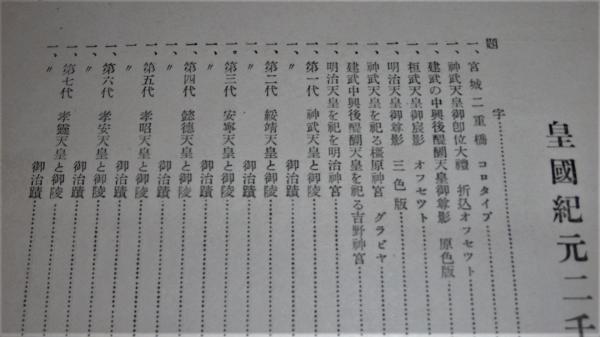 皇國紀元二千
題字
一、宮城二重橋 コロタイプ
一、神武天皇御卽位大禮 折込オフセツト
一、建武の中興後醍醐天皇御尊影 原色版
一、桓武天皇御宸影 オフセツト
一、明治天皇御尊影 三色版
一、神武天皇を祀る橿原神宮 グラビヤ
一、建武中興後醍醐天皇を祀る吉野神宮
一、明治天皇を祀を明治神宮
一、第一代 神武天皇と御陵
一、〃 御治蹟
一、第二代 綏靖天皇と御陵
一、〃 御治蹟
一、第三代 安寧天皇と御陵
一、〃 御治蹟
一、第四代 懿德天皇と御陵
一、〃 御治蹟
一、第五代 孝昭天皇と御陵
一、〃 御治蹟
一、第六代 孝安天皇と御陵
一、〃 御治蹟
一、第七代 孝靈天皇と御陵
一、〃 御治蹟